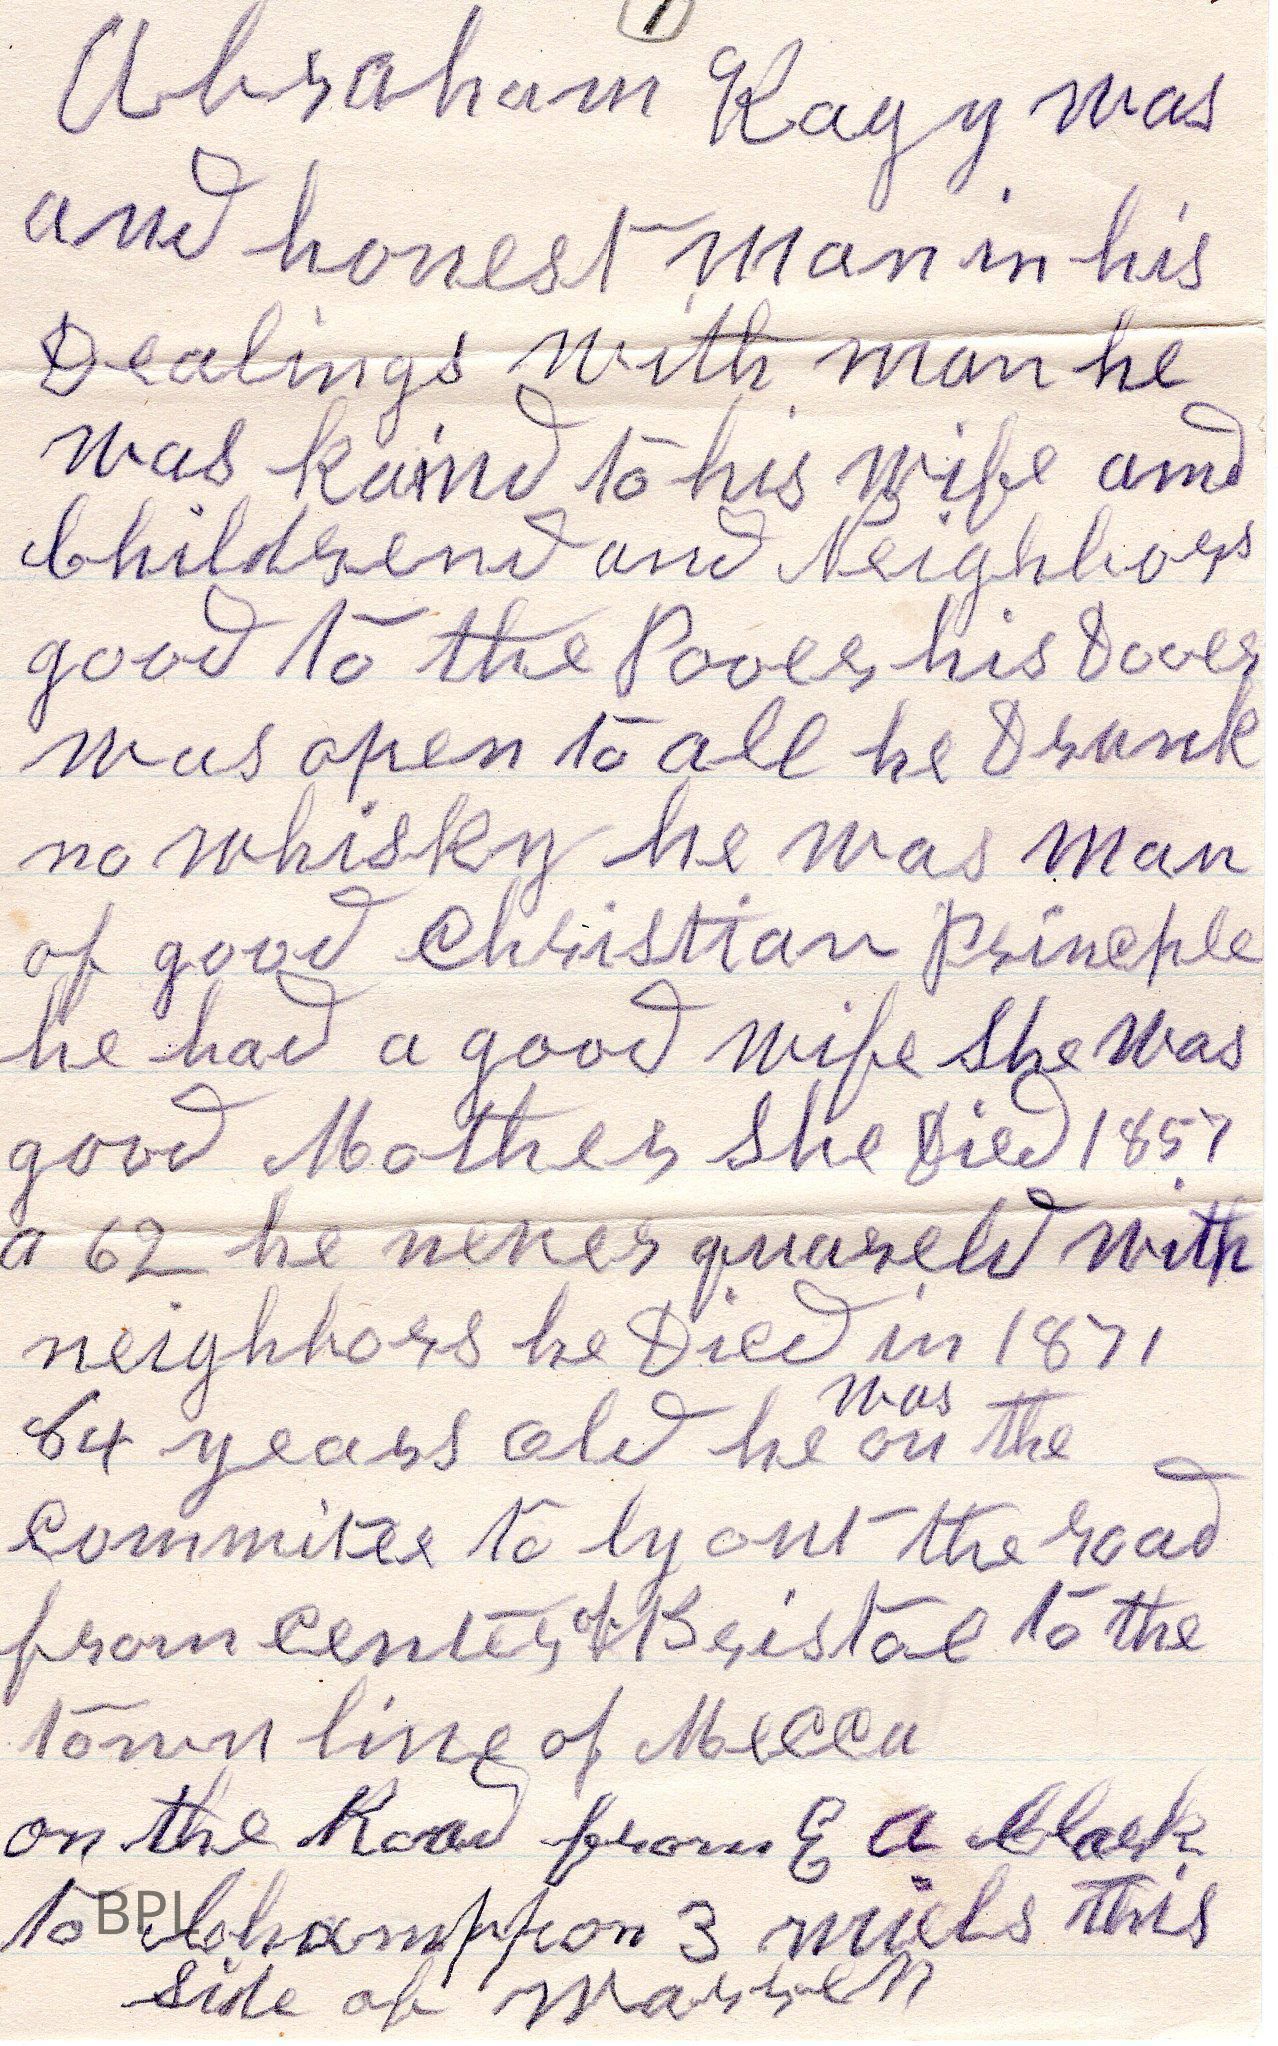 1
Abraham Kagy was
and honest man in his
Dealings with man he
was kaind to his wife and
Childrend and Neighbors
good to the Pooer his Dooer
was open to all he Drunk
no whisky he was man
of good Christian Princple
he had a good wife She was
good Mother She Died 1857
a 62 he never quareld with
neighbors he Died in 1871
64 years old he was on the
committee to ly out the road
from center of Bristol to the
town line of Mecca
on the Road from E a Clark
to Champpion 3 miels this
side of Warren
BPL